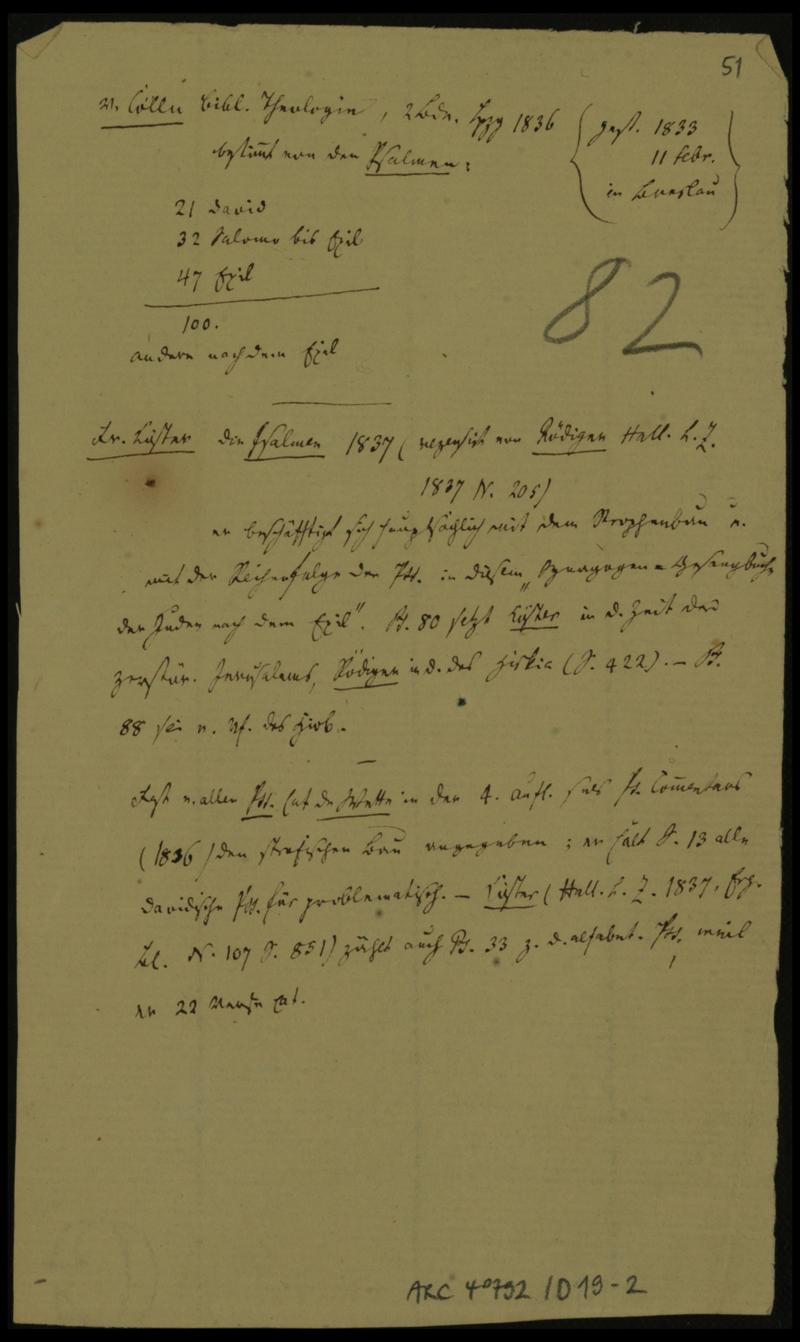 51
v. Cölln bibl. Theologie, 2 Bde. Lpzg 1836 { gest. 1833
11 febr.
in Breslau }
bestimt von den Psalmen:
21 David
32 Salomo bis Exil
47 Exil
100.
andere nach dem Exil
82
Fr. Köster die Psalmen 1837 (rezensirt von Rödiger Hall. L. Z.
1837 N. 205)
er beschäftigt sich hauptsächlich mit dem Strophenbau u.
mit der Reihenfolge der Pss. in diesem „Synagogen-Gesangbuche
der Juden nach dem Exil". Ps. 80 setzt Köster in d. Zeit der
zerstör. Jerusalems, Rödiger in d. des Hiskia (S. 422). — Ps.
88 sei v. Vf. des Hiob.
Fast v. allen Pss. hat de Wette in der 4. Aufl. sns Ps. Commentars
(1836) den strofischen Bau angegeben; er hält S. 13 alle
davidische Pss. für problematisch. — Köster (Hall. L. Z. 1837, Erg.
Bl. N. 107 S. 851) zählt auch Ps. 33 z. d. alfabet. Pss., weil
er 22 Verse hat.
ARC 4°792 / D19-2